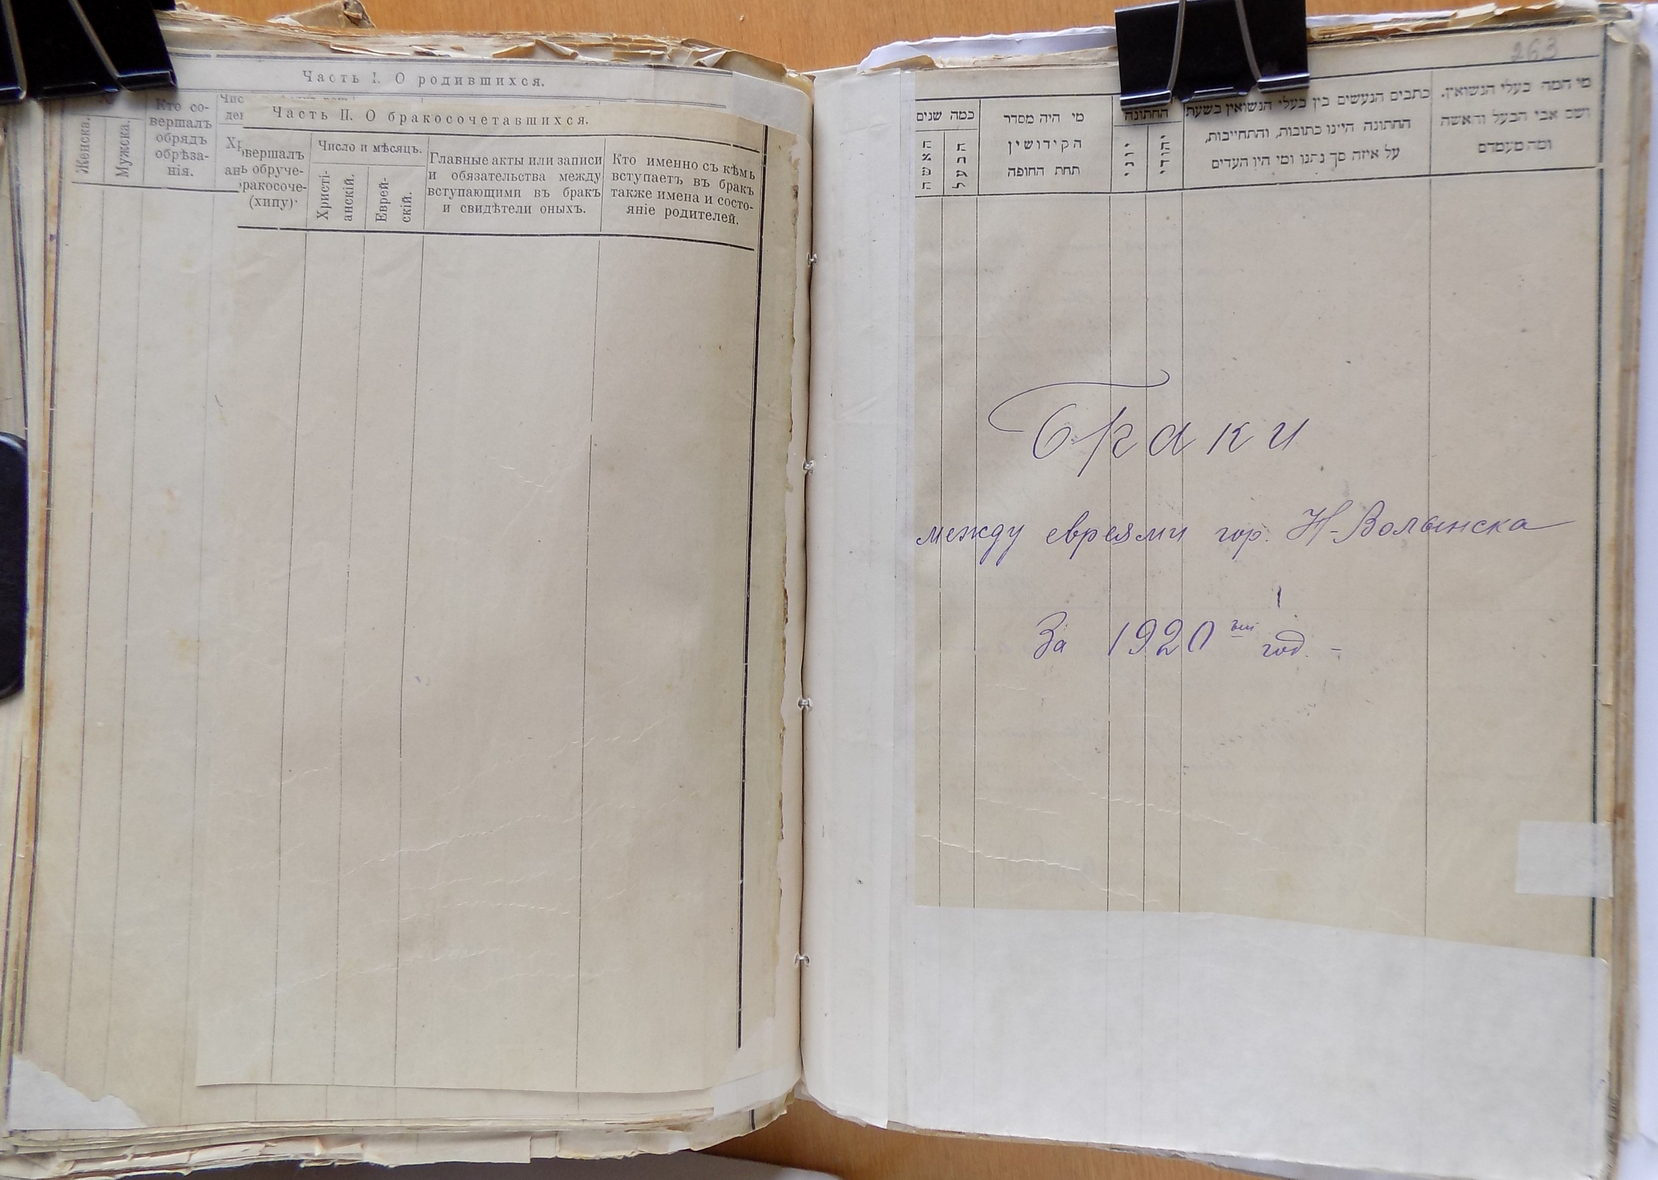 Часть I. О родившихся.
Женска.
Мужска.
Кто со-
вершалъ
обрядъ
обрѣза-
нія.
Часть II. О бракосочетавшихся.
вершалъ
ъ обруче-
ракосоче-
(хипу)
Число и мѣсяцъ.
Христі-
анскій.
Еврей-
скій.
Главные акты или записи
и обязательства между
вступающими въ бракъ
и свидѣтели оныхъ.
Кто именно съ кѣмъ
вступаетъ въ бракъ
также имена и состо-
яніе родителей.
263
מי המה בעלי הנשואין,
ושם אבי הבעל והאשה
ומה מעמדם
כתבים הנעשים בין בעלי הנשואין בשעת
החתונה היינו כתובות, והתחייבות,
על איזה סך נתנו ומי היו העדים
החתונה
יהודי
יוני
מי היה מסדר
הקידושין
תחת החופה
כמה שנים
הבעל
האשה
Браки
между евреями гор. Н-Волынска
За 1920 ый год. -